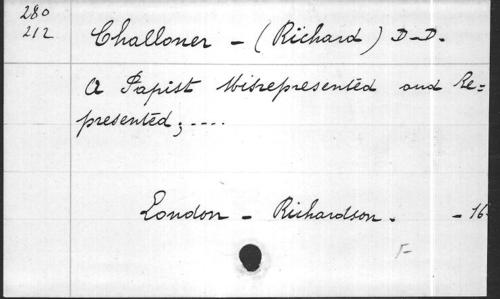 280
212
Challoner - (Richard) D-D.
A Papist Misrepresented and Re-
presented; ....
London - Richardson. - 16